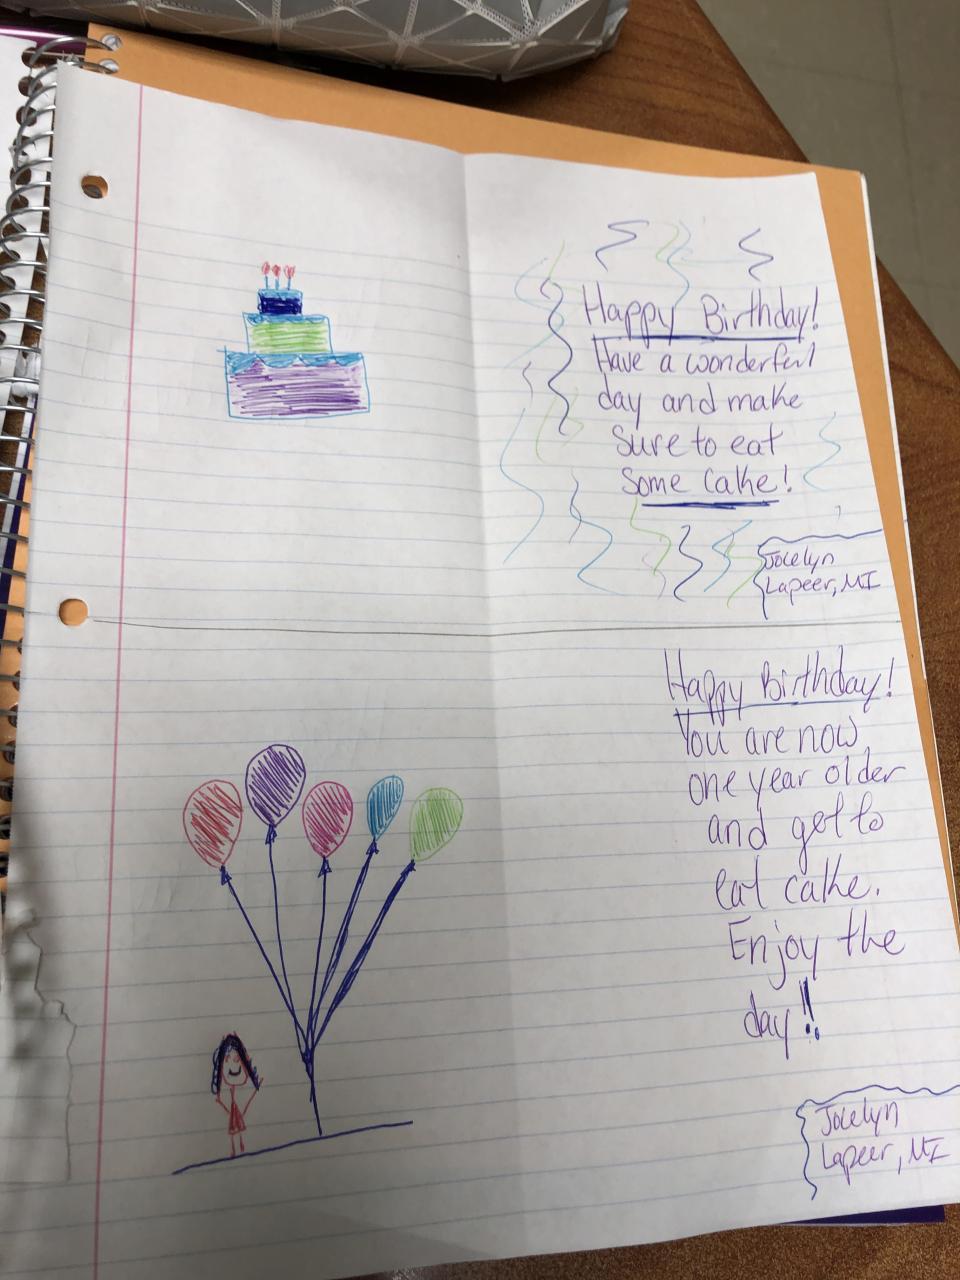 Happy Birthday!
Have a wonderful
day and make
sure to eat
some cake!
Jocelyn
Lapeer, MI
Happy Birthday!
You are now
one year older
and get to
eat cake.
Enjoy the
day!!
Jocelyn
Lapeer, MI